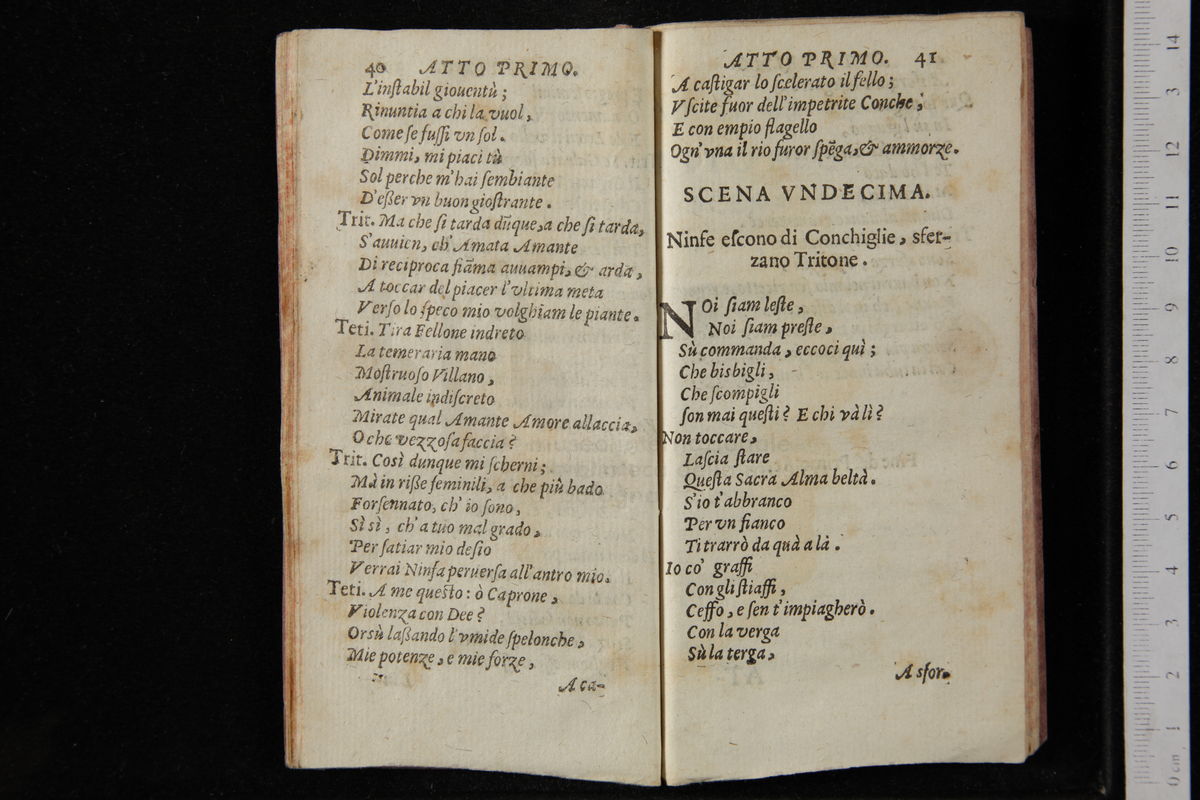 40 ATTO PRIMO.
L'inſtabil giouentù;
Rinuntia a chi la vuol,
Come ſe fuſſi vn ſol.
Dimmi, mi piaci tù
Sol perche m'hai ſembiante
D'eßer vn buon gioſtrante.
Trit. Ma che ſi tarda dũque, a che ſi tarda,
S'auuien, ch'Amata Amante
Di reciproca fiãma auuampi, & arda,
A toccar del piacer l'vltima meta
Verſo lo ſpeco mio volghiam le piante.
Teti. Tira Fellone indreto
La temeraria mano
Moſtruoſo Villano,
Animale indiſcreto
Mirate qual Amante Amore allaccia,
O che vezzoſa faccia?
Trit. Così dunque mi ſcherni;
Mà in riße feminili, a che più bado
Forſennato, ch'io ſono,
Sì sì, ch'a tuo mal grado,
Per ſatiar mio deſio
Verrai Ninfa peruerſa all'antro mio.
Teti. A me queſto: ò Caprone,
Violenza con Dee?
Orsù laßando l'vmide ſpelonche,
Mie potenze, e mie forze,
A ca-
ATTO PRIMO. 41
A caſtigar lo ſcelerato il fello;
Vſcite fuor dell'impetrite Conche;
E con empio flagello
Ogn'vna il rio furor ſpẽga, & ammorze.
SCENA VNDECIMA.
Ninfe eſcono di Conchiglie, sfer-
zano Tritone.
NOi ſiam leſte,
Noi ſiam preſte,
Sù commanda, eccoci quì;
Che bisbigli,
Che ſcompigli
ſon mai queſti? E chi và lì?
Non toccare,
Laſcia ſtare
Queſta Sacra Alma beltà.
S'io t'abbranco
Per vn fianco
Ti trarrò da quà a là.
Io co' graffi
Con gli ſtiaffi,
Ceffo, e ſen t'impiagherò.
Con la verga
Sù la terga,
A sfor-
14
13
12
11
10
9
8
7
6
5
4
3
2
1
0 cm